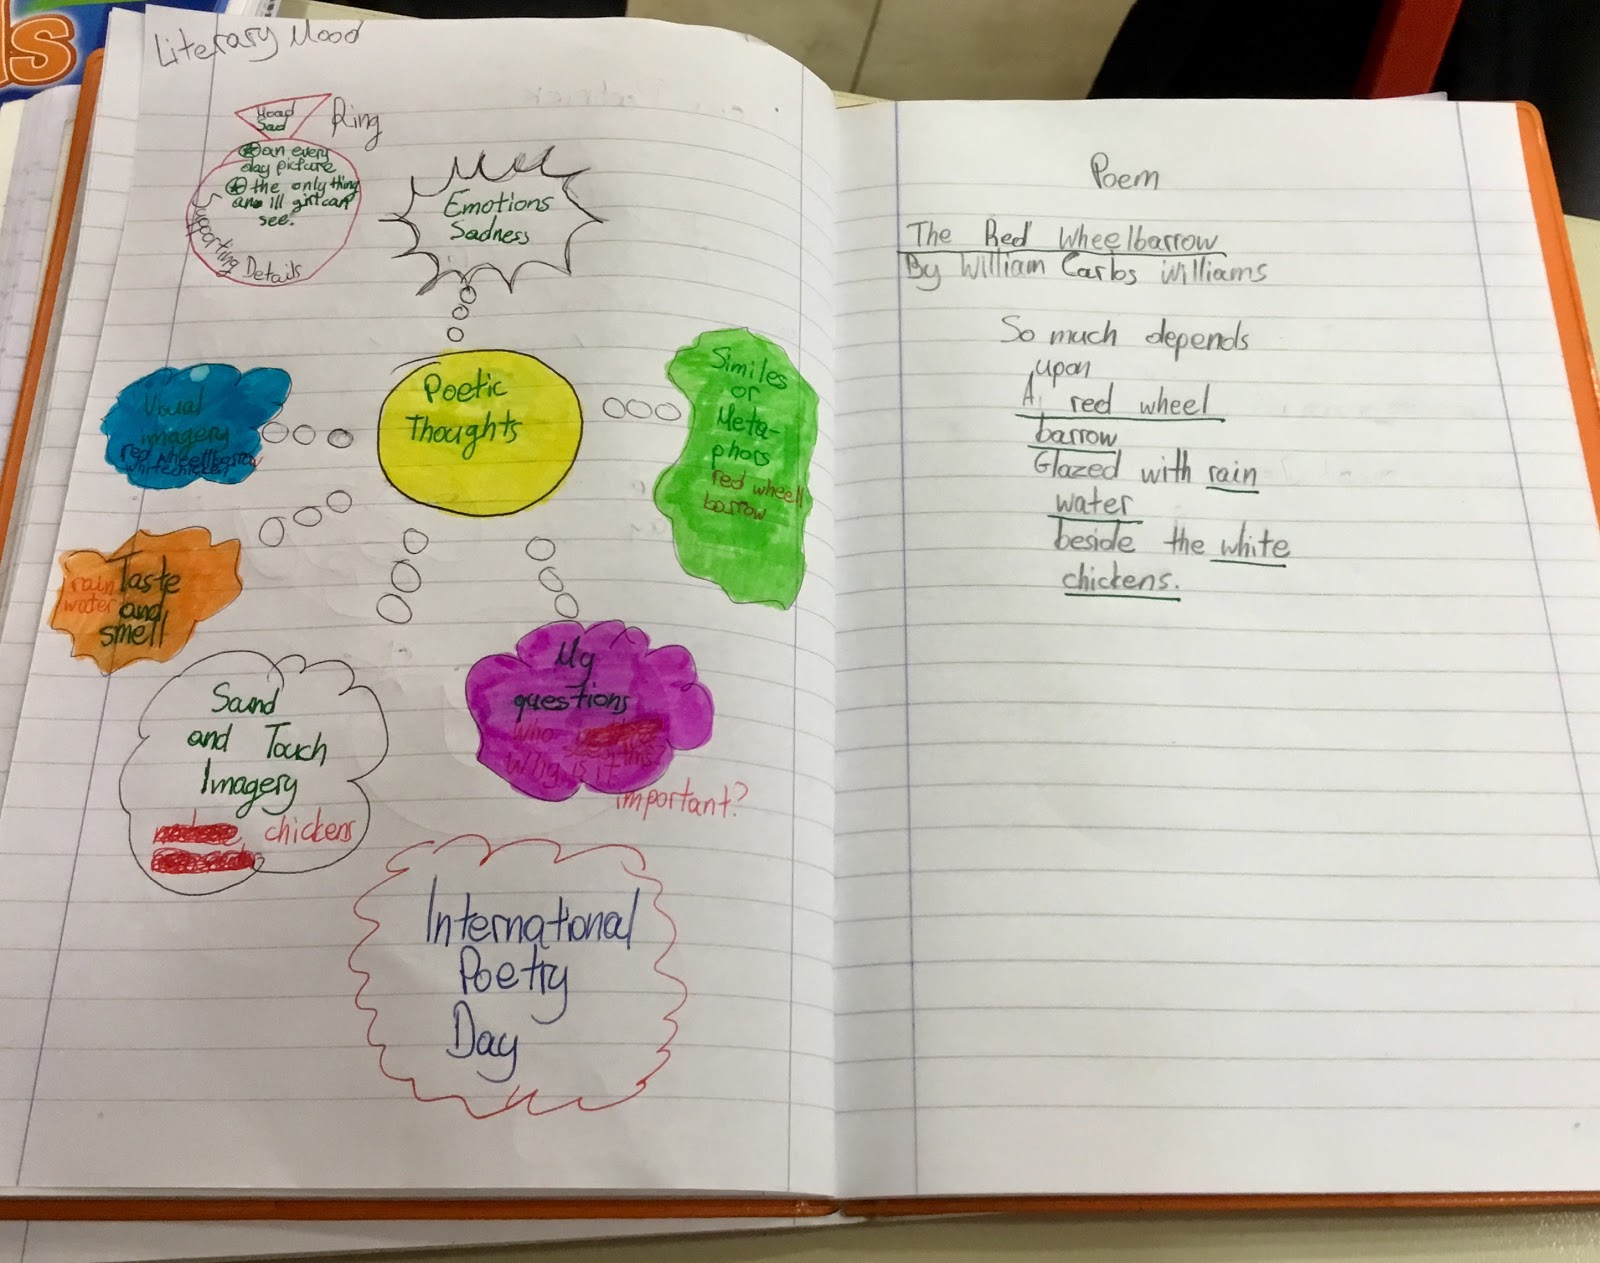 Literary Mood
Mood
Sad
Ring
an every
day picture
the only thing
an ill girl can
see.
Supporting Details
Emotions
Sadness
Poetic
Thoughts
Similes
or
Meta-
phors
red wheell
barrow
Visual
imagery
red wheellbarrow
white chicken
rain Taste
water and
smell
Sound
and Touch
Imagery
chickens
My
questions
Who
this?
Why is it
important?
International
Poetry
Day
Poem
The Red Wheelbarrow
By William Carlos Williams
So much depends
upon
A red wheel
barrow
Glazed with rain
water
beside the white
chickens.